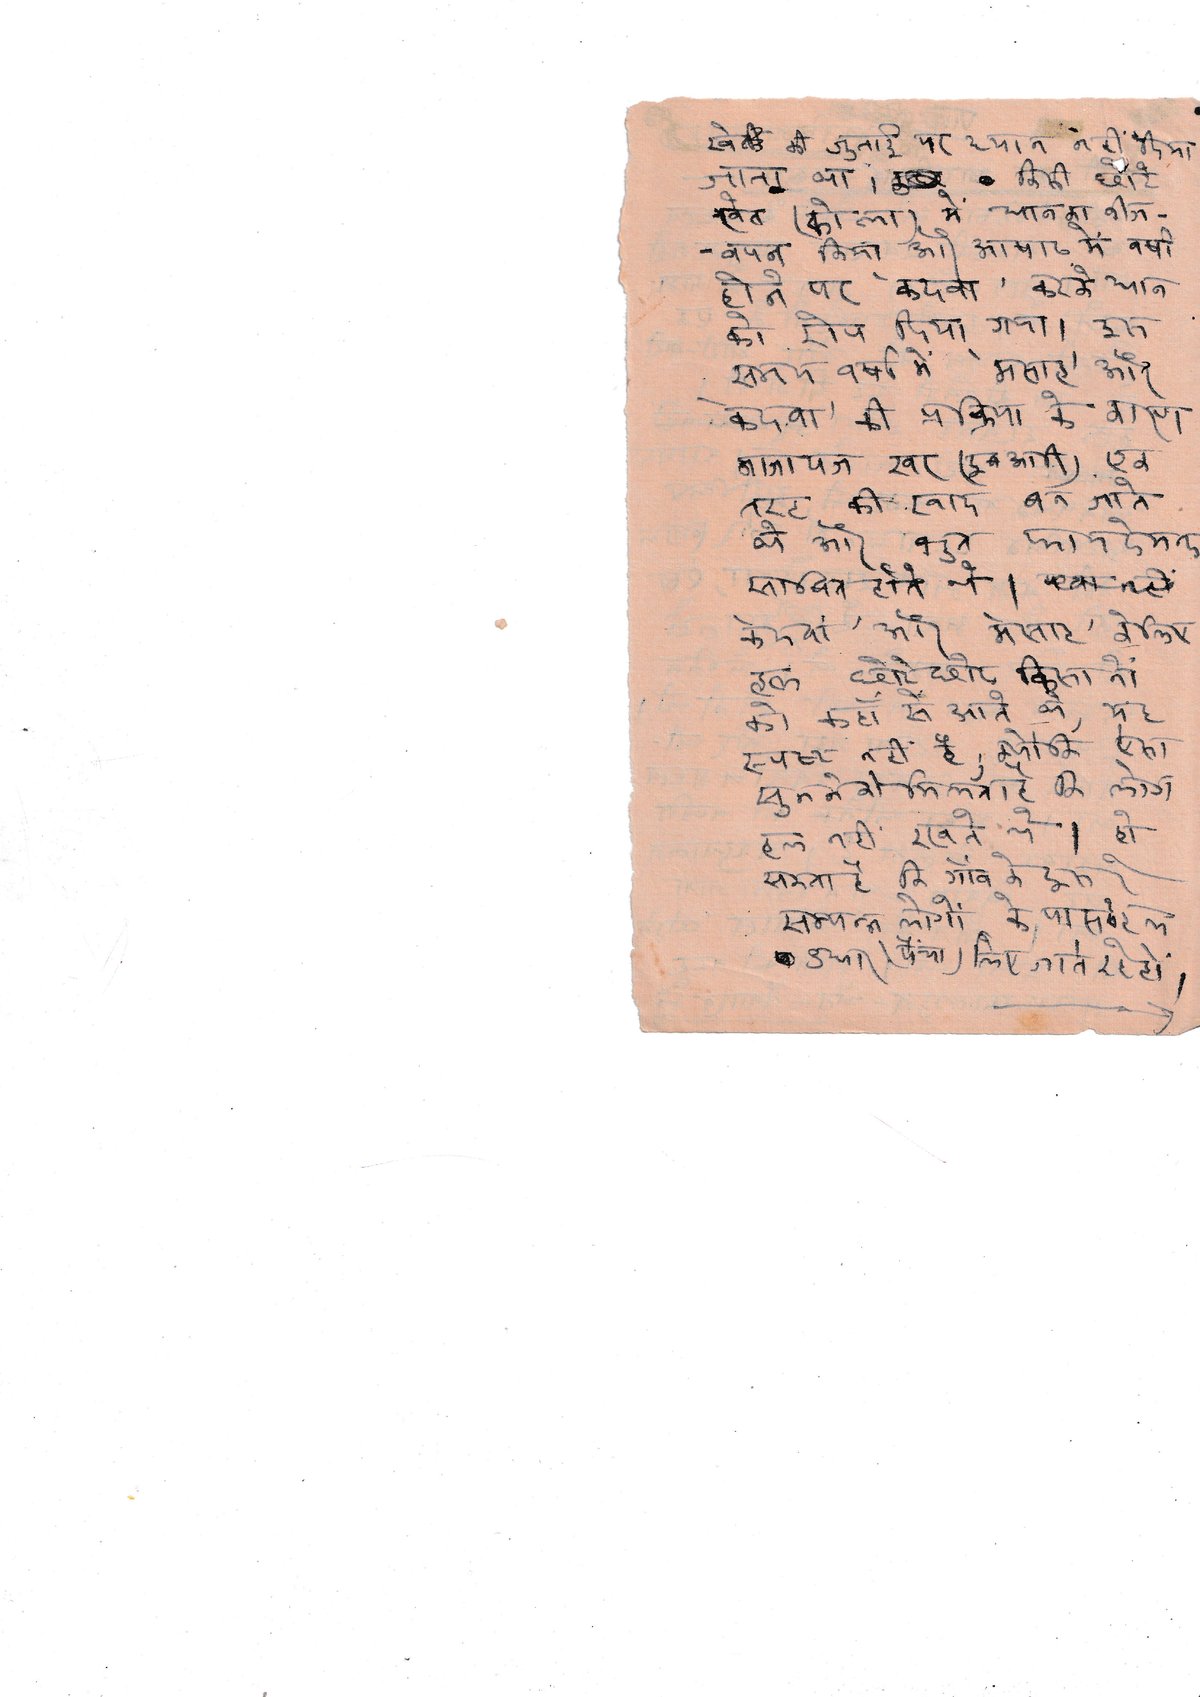 खेत की जुताई पर ध्यान नहीं दिया
जाता था। किसी छोटे
खेत (कोला) में धान का बीज-
-वपन किया और आषाढ में वर्षा
होने पर 'कदवा' करके धान
को रोप दिया गया। इस
समय वर्षा में 'मसाह' और
'कदवा' की प्रक्रिया के कारण
खर एक
तरह की खाद बन जाते
थे और बहुत फायदेमन्द
साबित होते थे।
'कदवा' और 'मसाह' के लिए
हल छोटे छोटे किसानों
को कहाँ से आते थे, यह
स्पष्ट नहीं है, क्योंकि ऐसा
सुनने को मिलता है कि लोग
हल नहीं रखते थे। हो
सकता है कि गाँव के दूसरे
सम्पन्न लोगों के पास से हल
उधार (पैंचा) लिए जाते रहे हों।